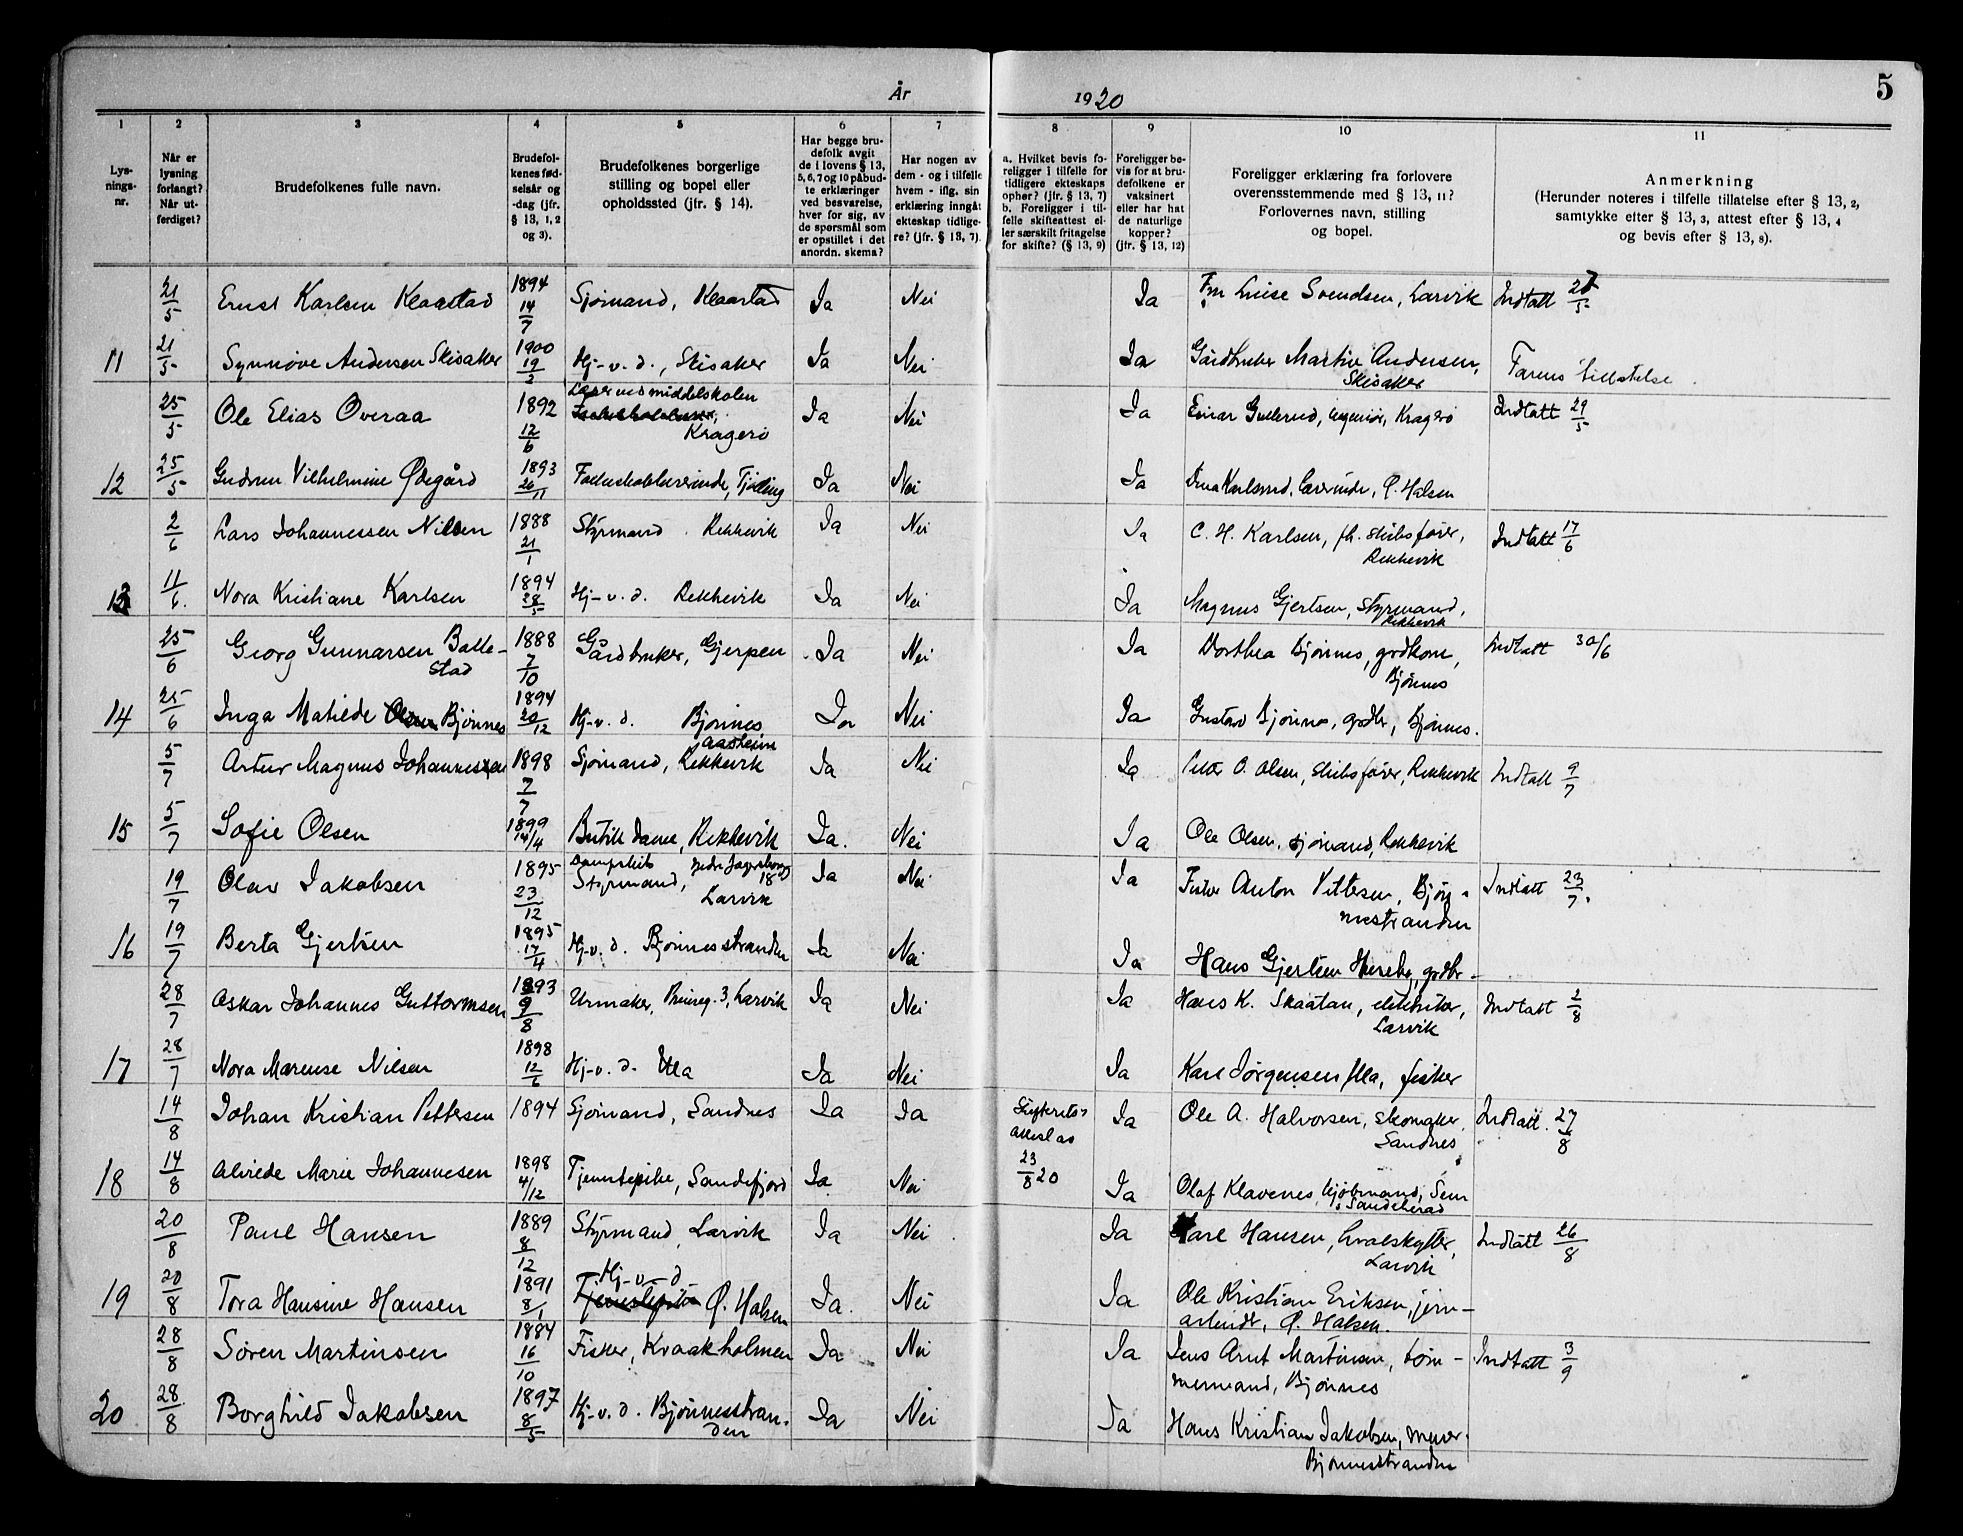 5
År 1920
1 2 3 4 5 6 7 8 9 10 11
Lys-
nings-
nr.
Når er
lysning
forlangt?
Når ut-
ferdiget?
Brudefolkenes fulle navn.
Brudefol-
kenes fød-
selsår og
-dag (jfr.
§ 13, 1, 2
og 3).
Brudefolkenes borgerlige
stilling og bopel eller
opholdssted (jfr. § 14).
Har begge bru-
defolk avgit
de i lovens § 13,
5, 6, 7 og 10 påbud-
te erklæringer
ved besvarelse,
hver for sig, av
de spørsmål som
er opstillet i det
anordn. skema?
Har nogen av
dem - og i tilfelle
hvem - iflg. sin
erklæring inngåt
ekteskap tidlige-
re? (jfr. § 13, 7).
a. Hvilket bevis fo-
religger i tilfelle for
tidligere ekteskaps
ophør? (jfr. § 13, 7)
b. Foreligger i til-
felle skifteattest el-
ler særskilt fritagelse
for skifte? (§ 13, 9)
Foreligger be-
vis for at bru-
defolkene er
vaksinert
eller har hat
de naturlige
kopper?
(jfr. § 13, 12)
Foreligger erklæring fra forlovere
overensstemmende med § 13, 11?
Forlovernes navn, stilling
og bopel.
Anmerkning
(Herunder noteres i tilfelle tillatelse efter § 13, 2,
samtykke efter § 13, 3, attest efter § 13, 4
og bevis efter § 13, 8).
21/5 Ernst Karlsen Klaastad 1894 14/7 Sjømand, Klaastad Ja Nei Ja Luise Svendsen, Larvik Indtatt 27/5
11 21/5 Synnøve Andersen Skisaker 1900 19/2 Hj-v.d., Skisaker Ja Nei Ja Gårdbruker Martin Andersen, Skisaker Farens tillatelse.
25/5 Ole Elias Overaa 1892 12/6 Lærer ved middelskolen Kragerø Ja Nei Ja Einar Gullerud, ingeniør, Kragerø Indtatt 29/5
12 25/5 Gudrun Vilhelmine Ødegård 1893 26/11 Folkeskolelærerinde, Tjølling Ja Nei Ja Karlsrud, lærerinde, Ø. Halsen
2/6 Lars Johannessen Nilsen 1888 21/1 Styrmand. Rekkevik Ja Nei Ja C. H. Karlsen, fh. skibsfører, Rekkevik Indtatt 17/6
13 11/6. Nora Kristiane Karlsen 1894 28/5 Hj-v.d. Rekkevik Ja Nei Ja Magnus Gjertsen, styrmand, Rekkevik
25/6 Georg Gunnarsen Balle-
stad 1888 7/10 Gårdbruker, Gjerpen Ja Nei Ja Dorthea Bjønnes, grdkone, Bjønnes Indtatt 30/6
14 25/6 Inga Matilde Olsen Bjønnes 1894 20/12 Hj-v.d. Bjønnes Ja Nei Ja Gustav Bjønnes, grdbr, Bjønnes.
5/7 Artur Magnus Johannessen 1898 7/7 Sjømand, Aasheim Rekkevik Ja Nei Ja Petter O. Olsen, skibsfører, Rekkevik Indtatt 9/7
15 5/7 Sofie Olsen 1899 14/4 Butikkdame, Rekkevik Ja. Nei Ja Ole Olsen, sjømand, Rekkevik
19/7 Olav Jakobsen 1895 23/12 Dampskibs Styrmand, Nedre Jegersborg 18 Larvik Ja Nei Ja Fisker Anton Pettersen, Bjøn-
nesstranden Indtatt 23/7.
16 19/7 Berta Gjertsen 1895 17/4 Hj-v.d. Bjønnesstranden Ja Nei Ja Hans Gjertsen, grdbr-
28/7 Oskar Johannes Guttormsen 1893 9/8 Urmaker, 3, Larvik Ja Nei Ja Hans K. Skaatan, elektriker, Larvik Indtatt 2/8
17 28/7 Nora Marense Nilsen 1898 12/6 Hj-v.d. Ula Ja Nei Ja Karl Jørgensen Ula, fisker
14/8 Johan Kristian Pettersen 1894 Sjømand, Sandnes Ja Ja Skifterets-
attest av
23/8 20 Ja Ole A. Halvorsen, skomaker, Sandnes Indtatt. 27/8
18 14/8 Alvilde Marie Johannesen 1898 4/12 Tjenestepike, Sandefjord Ja Nei Ja Olaf Klavenes, kjøbmand, Sem, Sandeherad
20/8 Paul Hansen 1889 8/12 Styrmand, Larvik Ja Nei Ja Karl Hansen, hvalskytter, Larvik Indtatt 26/8
19 20/8 Tora Hansine Hansen 1891 8/1 Hj-v-d Tjenestepike Ø. Halsen Ja. Nei Ja Ole Kristian Eriksen, jern-
arbeider, Ø. Halsen.
28/8 Søren Martinsen 1884 16/10 Fisker, Kraakholmen Ja Nei Ja Jens Arnt Martinsen, tøm-
mermand, Bjønnes Indtatt 3/9
20 28/8 Borghild Jakobsen 1897 8/5 Hj-v.d. Bjønnesstran-
den Ja Nei Ja Hans Kristian Jakobsen, murer.
Bjønnesstranden